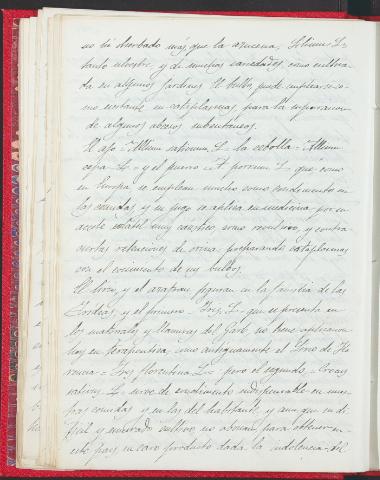 no he observado más que la azucena, Lilium L=
tanto silvestre, y de muchas variedades, como cultiva-
da en algunos jardines. El bulbo, puede emplearse co-
mo sustancia en cataplasmas para la supuración
de algunos abscesos subcutáneos.
El ajo = Allium sativum, L= la cebolla = Allium
cepa = L= y el puerro = A. porrum, L= que como
en Europa se emplean mucho como condimento en
las comidas, y su jugo se aplica en medicina, por su
aceite volátil muy cáustico, como revulsivo, y contra
ciertas retenciones de orina, preparando cataplasmas
con el cocimiento de sus bulbos.
El lirio, y el azafrán, figuran en la familia de las
Irideas, y el primero = Iris, L= que se presenta en
los matorrales y llanuras del no tiene aplicación
hoy en terapéutica, como antiguamente el Lirio de Flo-
rencia = Iris florentina, L= pero el segundo = Crocus
sativus, L= sirve de condimento indispensable en nues-
tras comidas, y en las del habitante, y aun que su di-
fícil y cultivo no abonan para obtener en
este país, un caro producto dada la indolencia del